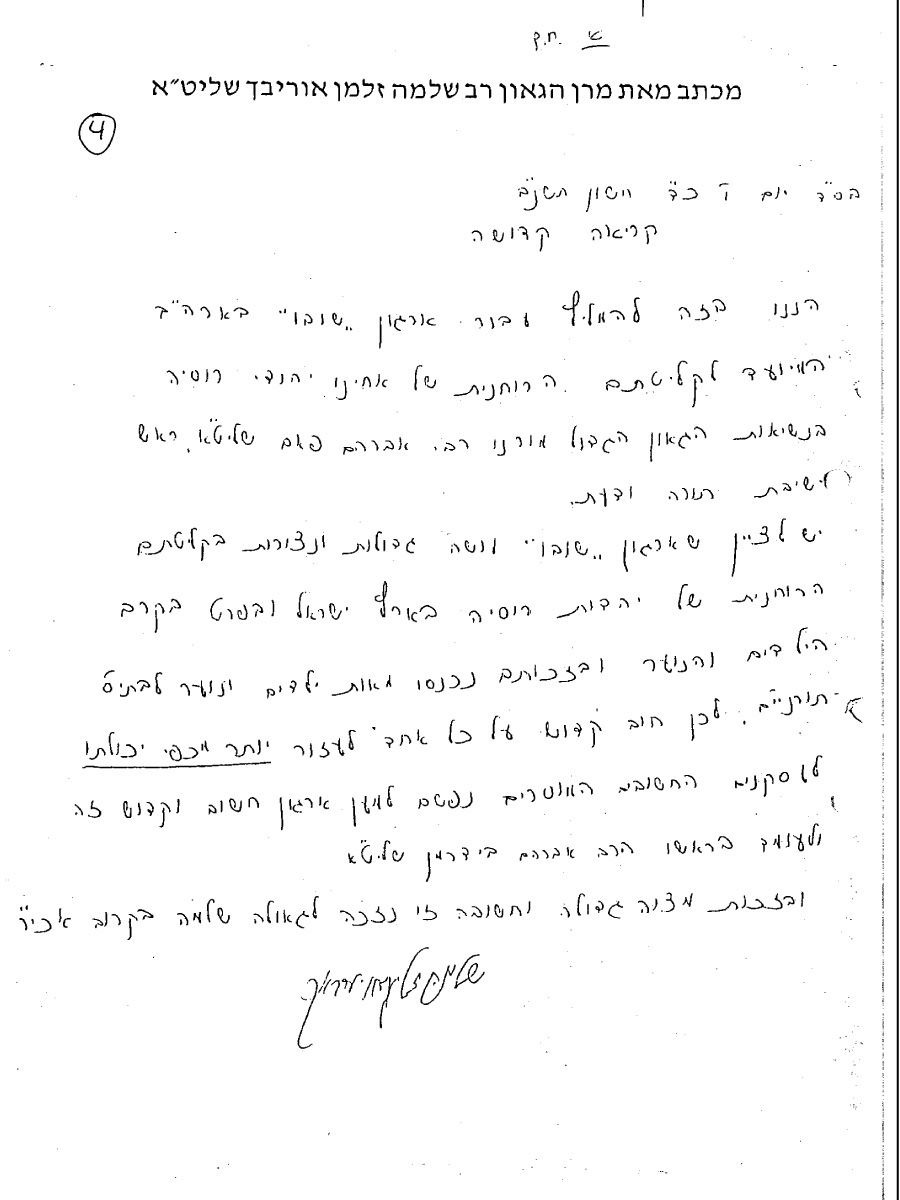 ח.ק.
מכתב מאת מרן הגאון רב שלמה זלמן אוריבך שליט״א
4
בס״ד יום ו׳ כ״ד חשון תשנ״ב
קריאה קדושה
הננו בזה להמליץ עבור ארגון ,,שובו״ בארה״ב
המיועד לקליטתם הרוחנית של אחינו יהודי רוסיה
בנשיאות הגאון הגדול מורנו רבי אברהם פאם שליט״א ראש
ישיבת תורה ודעת.
יש לציין שארגון ,,שובו״ עושה גדולות ונצורות בקליטתם
הרוחנית של יהדות רוסיה בארץ ישראל ובפרט בקרב
הילדים והנוער ובזכותם נכנסו מאות ילדים ונוער לבתי״ס
תורניים. לכן חוב קדוש על כל אחד לעזור יותר מכפי יכולתו
לעסקנים החשובים המוסרים נפשם למען ארגון חשוב וקדוש זה
ולעומד בראשו הרב אברהם בידרמן שליט״א
ובזכות מצוה גדולה וחשובה זו נזכה לגאולה שלמה בקרוב אכי״ר
שלמה זלמן אויערבאך